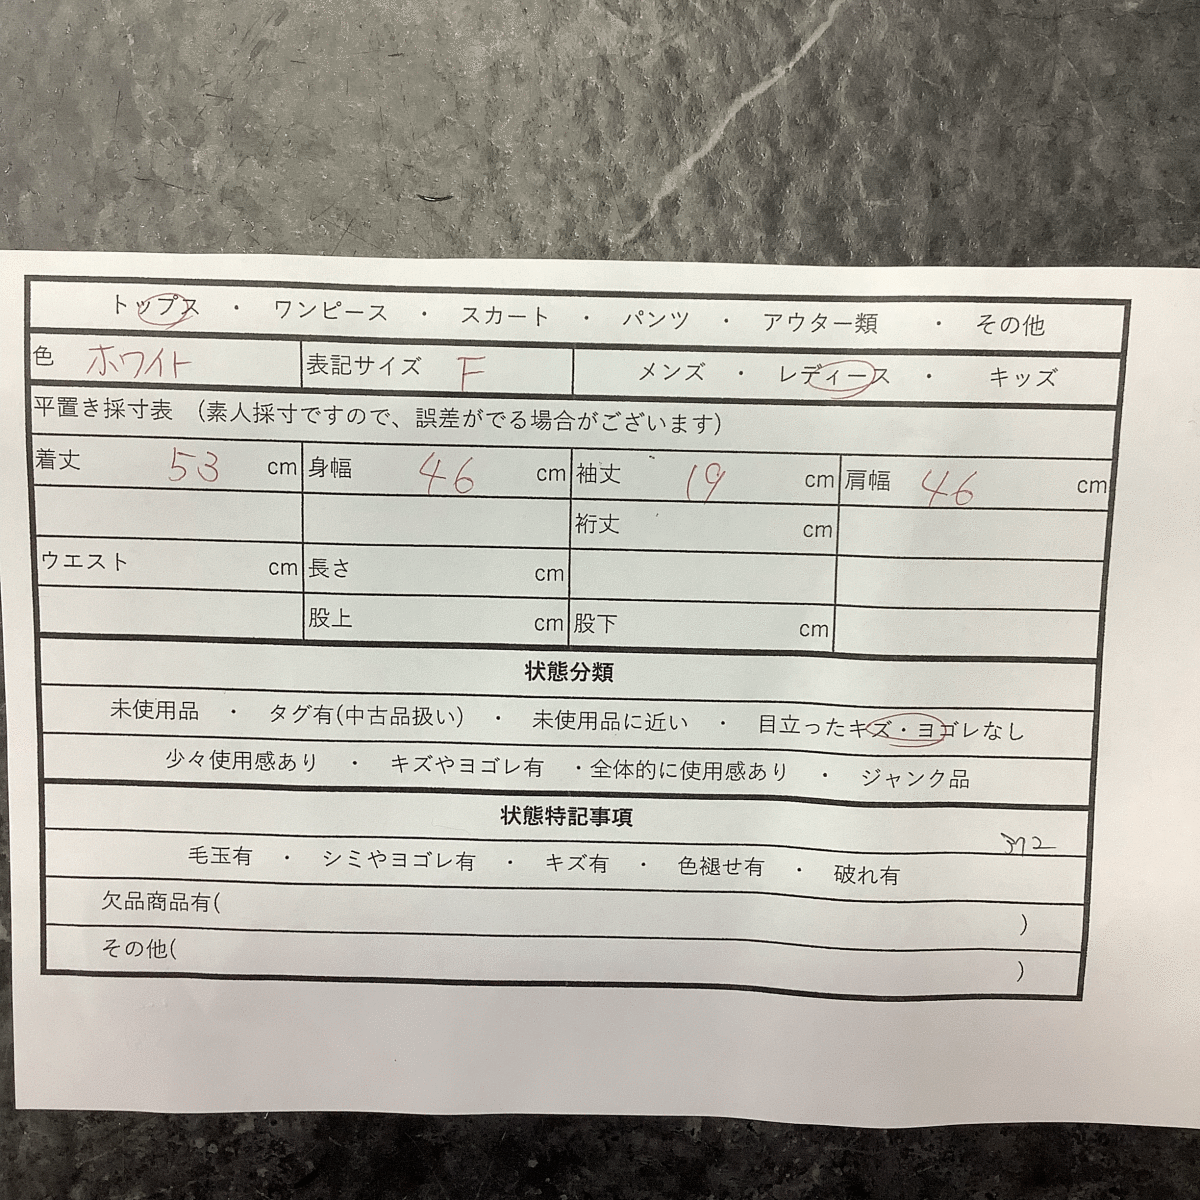 トップス ・ ワンピース ・ スカート ・ パンツ ・ アウター類 ・ その他
色 ホワイト 表記サイズ F メンズ ・ レディース ・ キッズ
平置き採寸表 （素人採寸ですので、誤差がでる場合がございます）
着丈 53 cm 身幅 46 cm 袖丈 19 cm 肩幅 46 cm
裄丈 cm
ウエスト cm 長さ cm
股上 cm 股下 cm
状態分類
未使用品 ・ タグ有(中古品扱い) ・ 未使用品に近い ・ 目立ったキズ・ヨゴレなし
少々使用感あり ・ キズやヨゴレ有 ・全体的に使用感あり ・ ジャンク品
状態特記事項
毛玉有 ・ シミやヨゴレ有 ・ キズ有 ・ 色褪せ有 ・ 破れ有
欠品商品有( )
その他( )